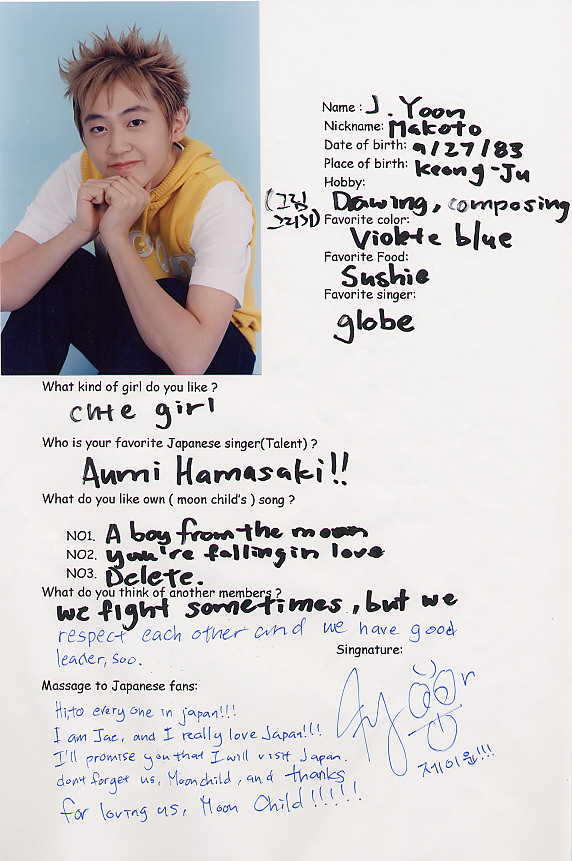 Name : J. Yoon
Nickname: Makoto
Date of birth: 9/27/83
Place of birth: Keong-Ju
Hobby:
(그림 그리기) Drawing, composing
Favorite color:
Violete blue
Favorite Food:
Sushie
Favorite singer:
globe
What kind of girl do you like ?
cute girl
Who is your favorite Japanese singer(Talent) ?
Aumi Hamasaki!!
What do you like own ( moon child's ) song ?
NO1. A boy from the moon
NO2. you're falling in love
NO3. Delete.
What do you think of another members ?
we fight sometimes, but we
respect each other and we have good
leader, soo.
Singnature:
J Yoon
제이윤!!!
Massage to Japanese fans:
Hi, to every one in japan!!!
I am Jae, and I really love Japan!!!
I'll promise you that I will visit Japan.
don't forget us, Moonchild, and thanks
for loving us, Moon Child!!!!!!